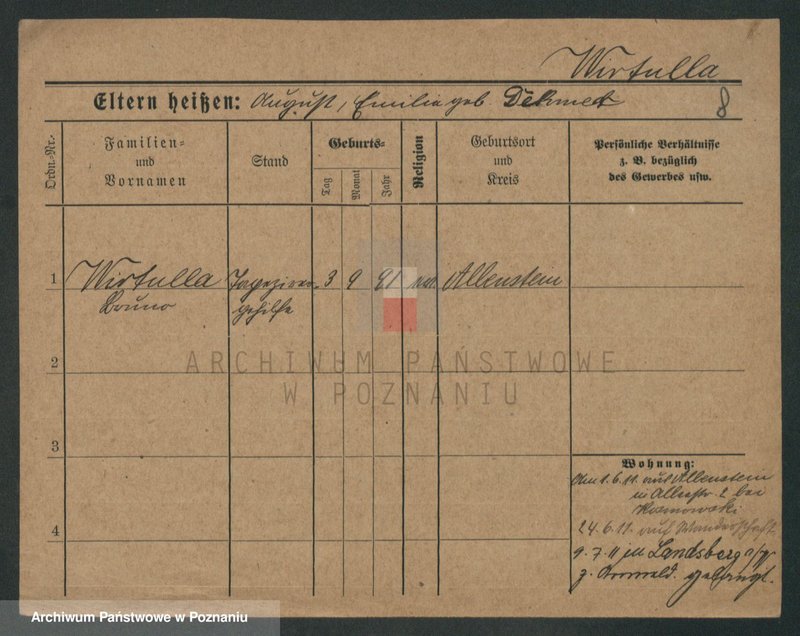 Wirtulla
Eltern heißen: August, Emilie geb. Dehmelt
8
Ordn.-Nr.
Familien- und Vornamen
Stand
Geburts-
Tag
Monat
Jahr
Religion
Geburtsort und Kreis
Persönliche Verhältnisse z. B. bezüglich des Gewerbes usw.
1 Wirtulla Bruno
gehilfe
3 9 91
Allenstein
2
3
4
ARCHIWUM PAŃSTWOWE
W POZNANIU
Wohnung:
Am 1.6.11. auf Allenstein
in Allestr. 2 bei
24.6.11. auf Wanderschaft
9.7.11 in Landsberg a/W
Archiwum Państwowe w Poznaniu